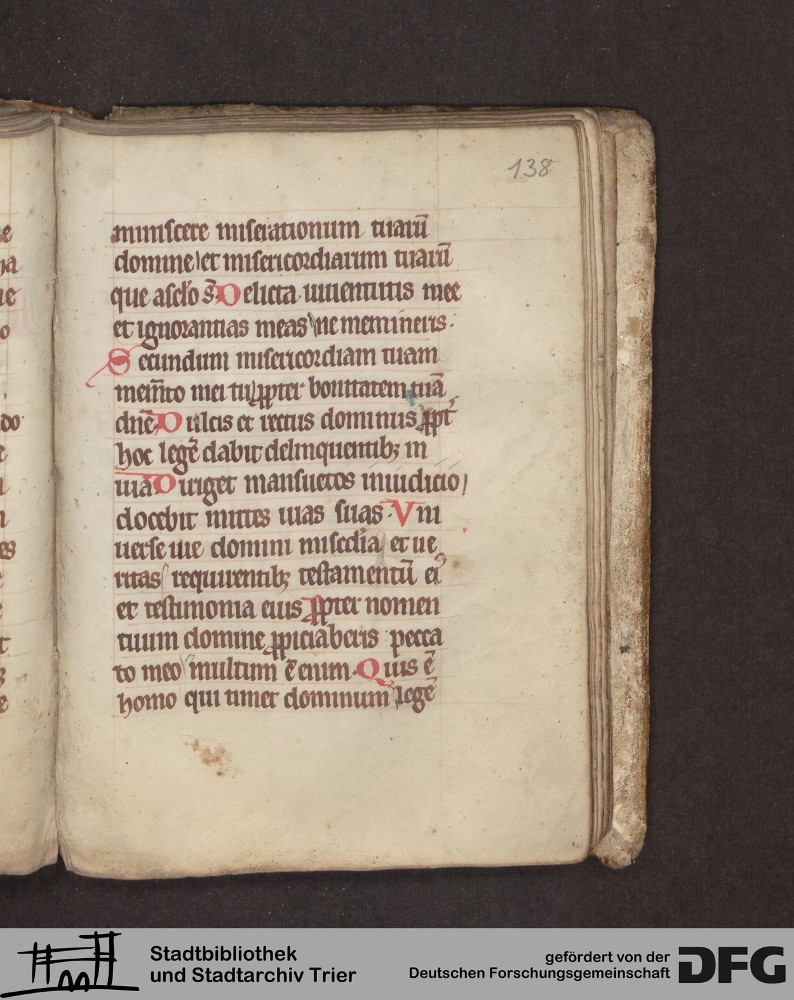 138
miniscere miserationum tuarū
domine et misericordiarum tuarū
que a sc̄lo s̄ Delicta iuuentutis mee
et ignorantias meas ne memineris.
Secundum misericordiam tuam
mem̄to mei tu ꝓpter bonitatem tuā
dn̄e Dulcis et rectus dominus ꝓpt̄
hoc legē dabit delinquentibꝫ in
uiā Diriget mansuetos in iudicio
docebit mites uias suas. Vni
uerse uie domini mis̄cdia et ue
ritas requirentibꝫ testamentū eiꝰ
et testimonia eius Ꝓpter nomen
tuum domine ꝓpiciaberis pecca
to meo multum ē enim. Quis ē
homo qui timet dominum legē
e
ue
o
do
e
n
es
e
t
e
Stadtbibliothek
und Stadtarchiv Trier
gefördert von der
Deutschen Forschungsgemeinschaft
DFG